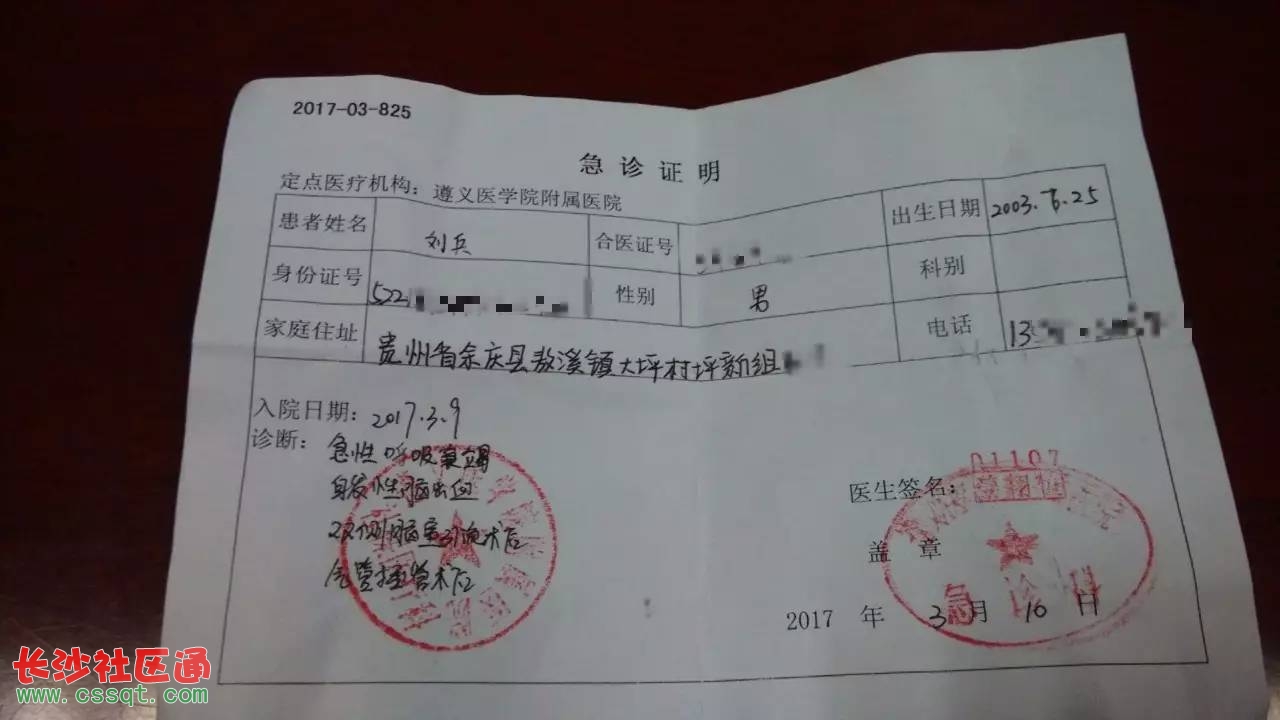 2017-03-825
急诊证明
定点医疗机构：遵义医学院附属医院
患者姓名 刘兵 合医证号 出生日期 2003.6.25
身份证号 522 性别 男 科别
家庭住址 贵州省余庆县敖溪镇大坪村坪新组 电话 13
入院日期：2017.3.9
诊断：急性呼吸衰竭
自发性脑出血
双侧脑室引流术后
气管插管术后
01107
医生签名：
盖 章
急诊科
2017 年 3 月 16 日
长沙社区通
www.cssqt.com